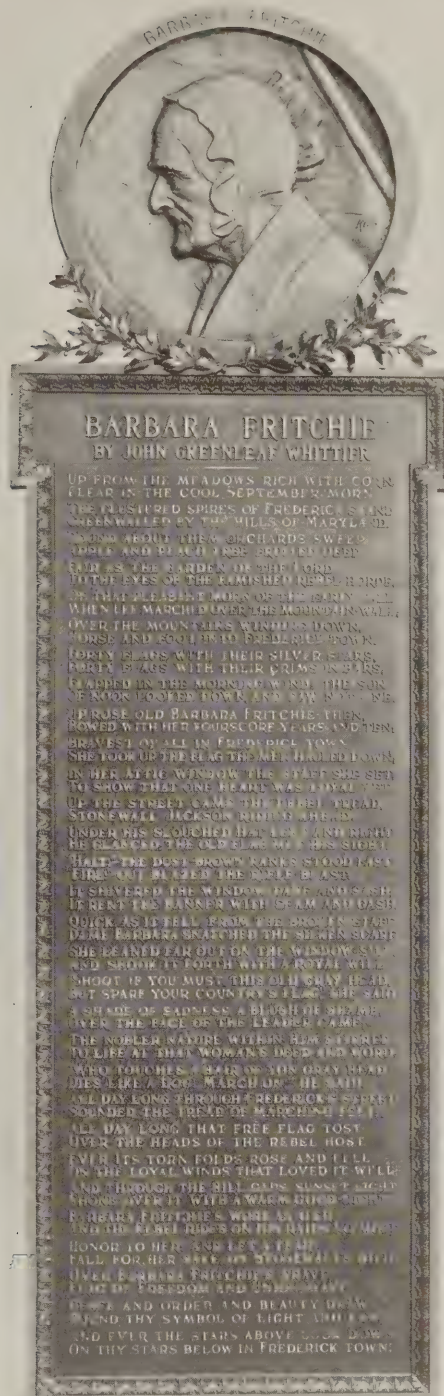 BARBARA FRITCHIE
BARBARA FRITCHIE
BY JOHN GREENLEAF WHITTIER
UP FROM THE MEADOWS RICH WITH CORN
CLEAR IN THE COOL SEPTEMBER MORN
THE CLUSTERED SPIRES OF FREDERICK STAND
GREENWALLED BY THE HILLS OF MARYLAND.
ROUND ABOUT THEM ORCHARDS SWEEP
APPLE AND PEACH TREE FRUITED DEEP
FAIR AS THE GARDEN OF THE LORD
TO THE EYES OF THE FAMISHED REBEL HORDE,
ON THAT PLEASANT MORN OF THE EARLY FALL
WHEN LEE MARCHED OVER THE MOUNTAIN WALL,
OVER THE MOUNTAINS WINDING DOWN,
HORSE AND FOOT INTO FREDERICK TOWN.
FORTY FLAGS WITH THEIR SILVER STARS,
FORTY FLAGS WITH THEIR CRIMSON BARS,
FLAPPED IN THE MORNING WIND: THE SUN
OF NOON LOOKED DOWN AND SAW NOT ONE.
UP ROSE OLD BARBARA FRITCHIE THEN,
BOWED WITH HER FOURSCORE YEARS AND TEN;
BRAVEST OF ALL IN FREDERICK TOWN
SHE TOOK UP THE FLAG THE MEN HAULED DOWN,
IN HER ATTIC WINDOW THE STAFF SHE SET
TO SHOW THAT ONE HEART WAS LOYAL YET
UP THE STREET CAME THE REBEL TREAD,
STONEWALL JACKSON RIDING AHEAD.
UNDER HIS SLOUCHED HAT LEFT AND RIGHT
HE GLANCED THE OLD FLAG MET HIS SIGHT
HALT! THE DUST BROWN RANKS STOOD FAST
FIRE! OUT BLAZED THE RIFLE BLAST
IT SHIVERED THE WINDOW PANE AND SASH
IT RENT THE BANNER WITH SEAM AND GASH
QUICK AS IT FELL FROM THE BROKEN STAFF
DAME BARBARA SNATCHED THE SILKEN SCARF
SHE LEANED FAR OUT ON THE WINDOW SILL
AND SHOOK IT FORTH WITH A ROYAL WILL
SHOOT IF YOU MUST THIS OLD GRAY HEAD,
BUT SPARE YOUR COUNTRY'S FLAG, SHE SAID
A SHADE OF SADNESS A BLUSH OF SHAME
OVER THE FACE OF THE LEADER CAME
THE NOBLER NATURE WITHIN HIM STIRRED
TO LIFE AT THAT WOMAN'S DEED AND WORD
WHO TOUCHES A HAIR OF YON GRAY HEAD
DIES LIKE A DOG. MARCH ON! HE SAID
ALL DAY LONG THROUGH FREDERICK STREET
SOUNDED THE TREAD OF MARCHING FEET
ALL DAY LONG THAT FREE FLAG TOST
OVER THE HEADS OF THE REBEL HOST
EVER ITS TORN FOLDS ROSE AND FELL
ON THE LOYAL WINDS THAT LOVED IT WELL
AND THROUGH THE HILL GAPS SUNSET LIGHT
SHONE OVER IT WITH A WARM GOOD NIGHT
BARBARA FRITCHIE'S WORK IS O'ER
AND THE REBEL RIDES ON HIS RAIDS NO MORE
HONOR TO HER AND LET A TEAR
FALL FOR HER SAKE ON STONEWALL'S BIER
OVER BARBARA FRITCHIE'S GRAVE
FLAG OF FREEDOM AND UNION WAVE
PEACE AND ORDER AND BEAUTY DRAW
ROUND THY SYMBOL OF LIGHT AND LAW
AND EVER THE STARS ABOVE LOOK DOWN
ON THY STARS BELOW IN FREDERICK TOWN!